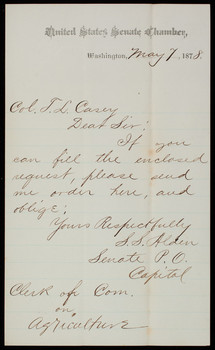 United States Senate Chamber,
Washington, May 7, 1878.
Col. T. L. Casey
Dear Sir;
If you
can fill the enclosed
request, please send
me order here, and
oblige;
Yours Respectfully
S. S. Alden
Senate P. O.
Capitol
Clerk of Com.
on
Agriculture